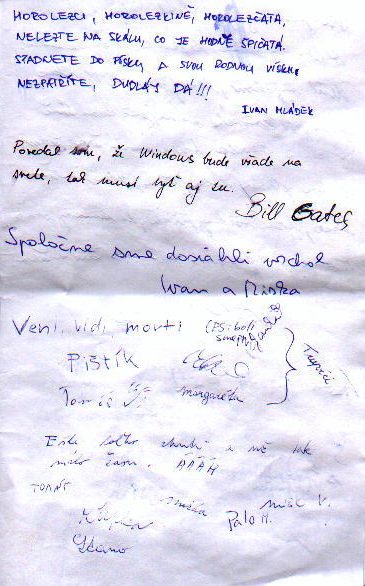 HOROLEZCI, HOROLEZKINĚ, HOROLEZČATA,
NELEZTE NA SKÁLU, CO JE HODNĚ ŠPIČATÁ.
SPADNETE DO PÍSKU A SVOU RODNOU VÍSKU
NEZPATŘÍTE, DUDLAJ DÁ!!!
IVAN MLÁDEK
Povedal som, že Windows bude všade na
svete, tak musí byť aj tu.
Bill Gates
Spoločne sme dosiahli vrchol
Ivan a Mirka
Veni, vidi, morti (PS: boli
sme
Pištík
Trapáci
Tomáš margaréta
Ešte toľko chuti a už tak
málo času. ÁÁÁH
TOMÁŠ
miška miši V.
Palo M.